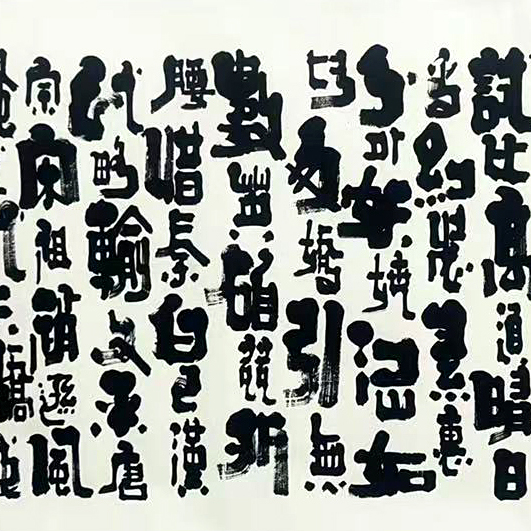 試比高須晴日
看紅裝素裹
分外妖嬈江山如
此多嬌引無
數英雄競折
腰惜秦皇漢
武略輸文采唐
宗宋祖稍遜風